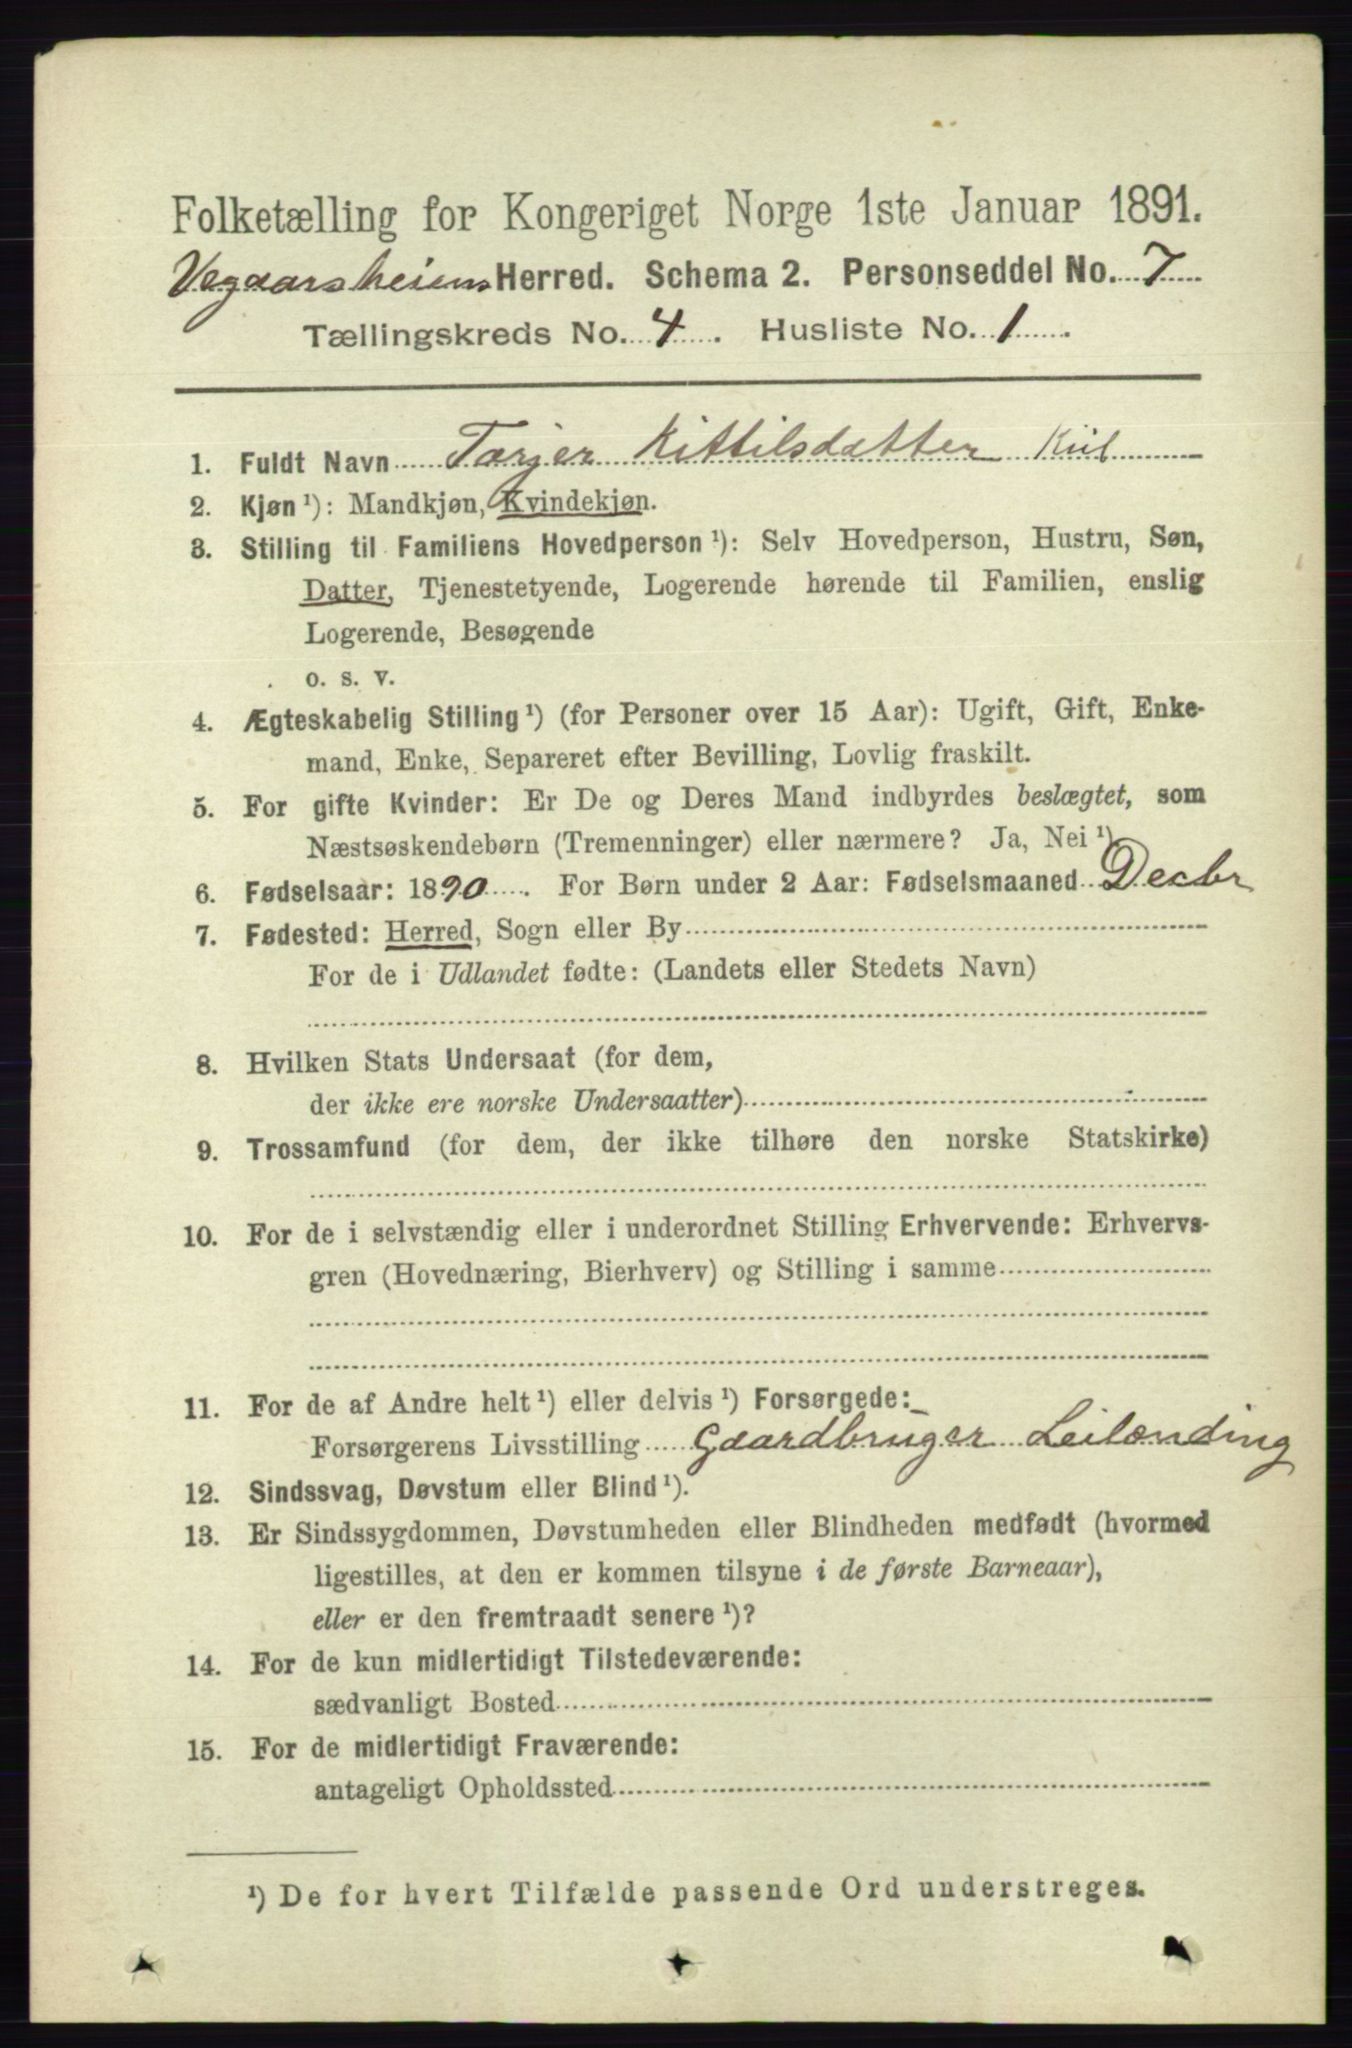 Folketælling for Kongeriget Norge 1ste Januar 1891.
Vegaarsheiens Herred. Schema 2. Personseddel No. 7
Tællingskreds No. 4. Husliste No. 1.
1. Fuldt Navn Tarjer Kittilsdatter Kiil
2. Kjøn ¹): Mandkjøn, Kvindekjøn.
3. Stilling til Familiens Hovedperson ¹): Selv Hovedperson, Hustru, Søn,
Datter, Tjenestetyende, Logerende hørende til Familien, enslig
Logerende, Besøgende
o. s. v.
4. Ægteskabelig Stilling ¹) (for Personer over 15 Aar): Ugift, Gift, Enke-
mand, Enke, Separeret efter Bevilling, Lovlig fraskilt.
5. For gifte Kvinder: Er De og Deres Mand indbyrdes beslægtet, som
Næstsøskendebørn (Tremenninger) eller nærmere? Ja, Nei ¹)
6. Fødselsaar: 1890. For Børn under 2 Aar: Fødselsmaaned Decbr
7. Fødested: Herred, Sogn eller By
For de i Udlandet fødte: (Landets eller Stedets Navn)
8. Hvilken Stats Undersaat (for dem,
der ikke ere norske Undersaatter)
9. Trossamfund (for dem, der ikke tilhøre den norske Statskirke)
10. For de i selvstændig eller i underordnet Stilling Erhvervende: Erhvervs-
gren (Hovednæring, Bierhverv) og Stilling i samme
11. For de af Andre helt ¹) eller delvis ¹) Forsørgede:
Forsørgerens Livsstilling Gaardbruger Leilænding
12. Sindssvag, Døvstum eller Blind ¹).
13. Er Sindssygdommen, Døvstumheden eller Blindheden medfødt (hvormed
ligestilles, at den er kommen tilsyne i de første Barneaar),
eller er den fremtraadt senere ¹)?
14. For de kun midlertidigt Tilstedeværende:
sædvanligt Bosted
15. For de midlertidigt Fraværende:
antageligt Opholdssted
¹) De for hvert Tilfælde passende Ord understreges.